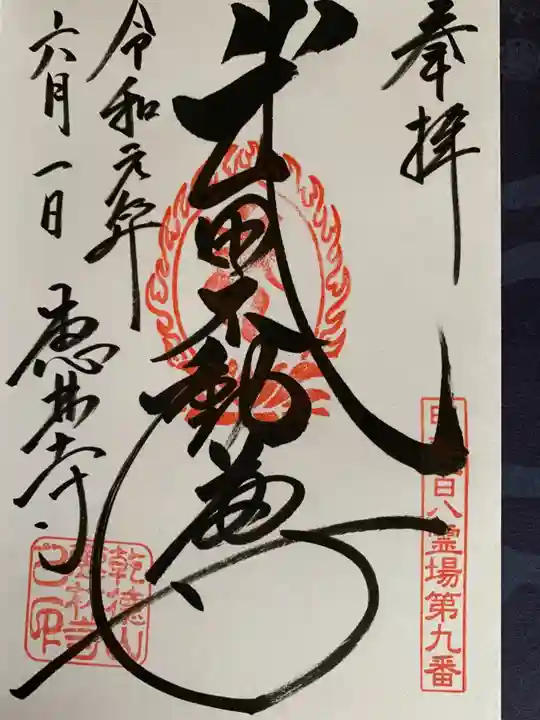 奉拝
武田不動尊
令和元年
六月一日
恵林寺
八霊場第九番
乾徳山
恵林寺
之印